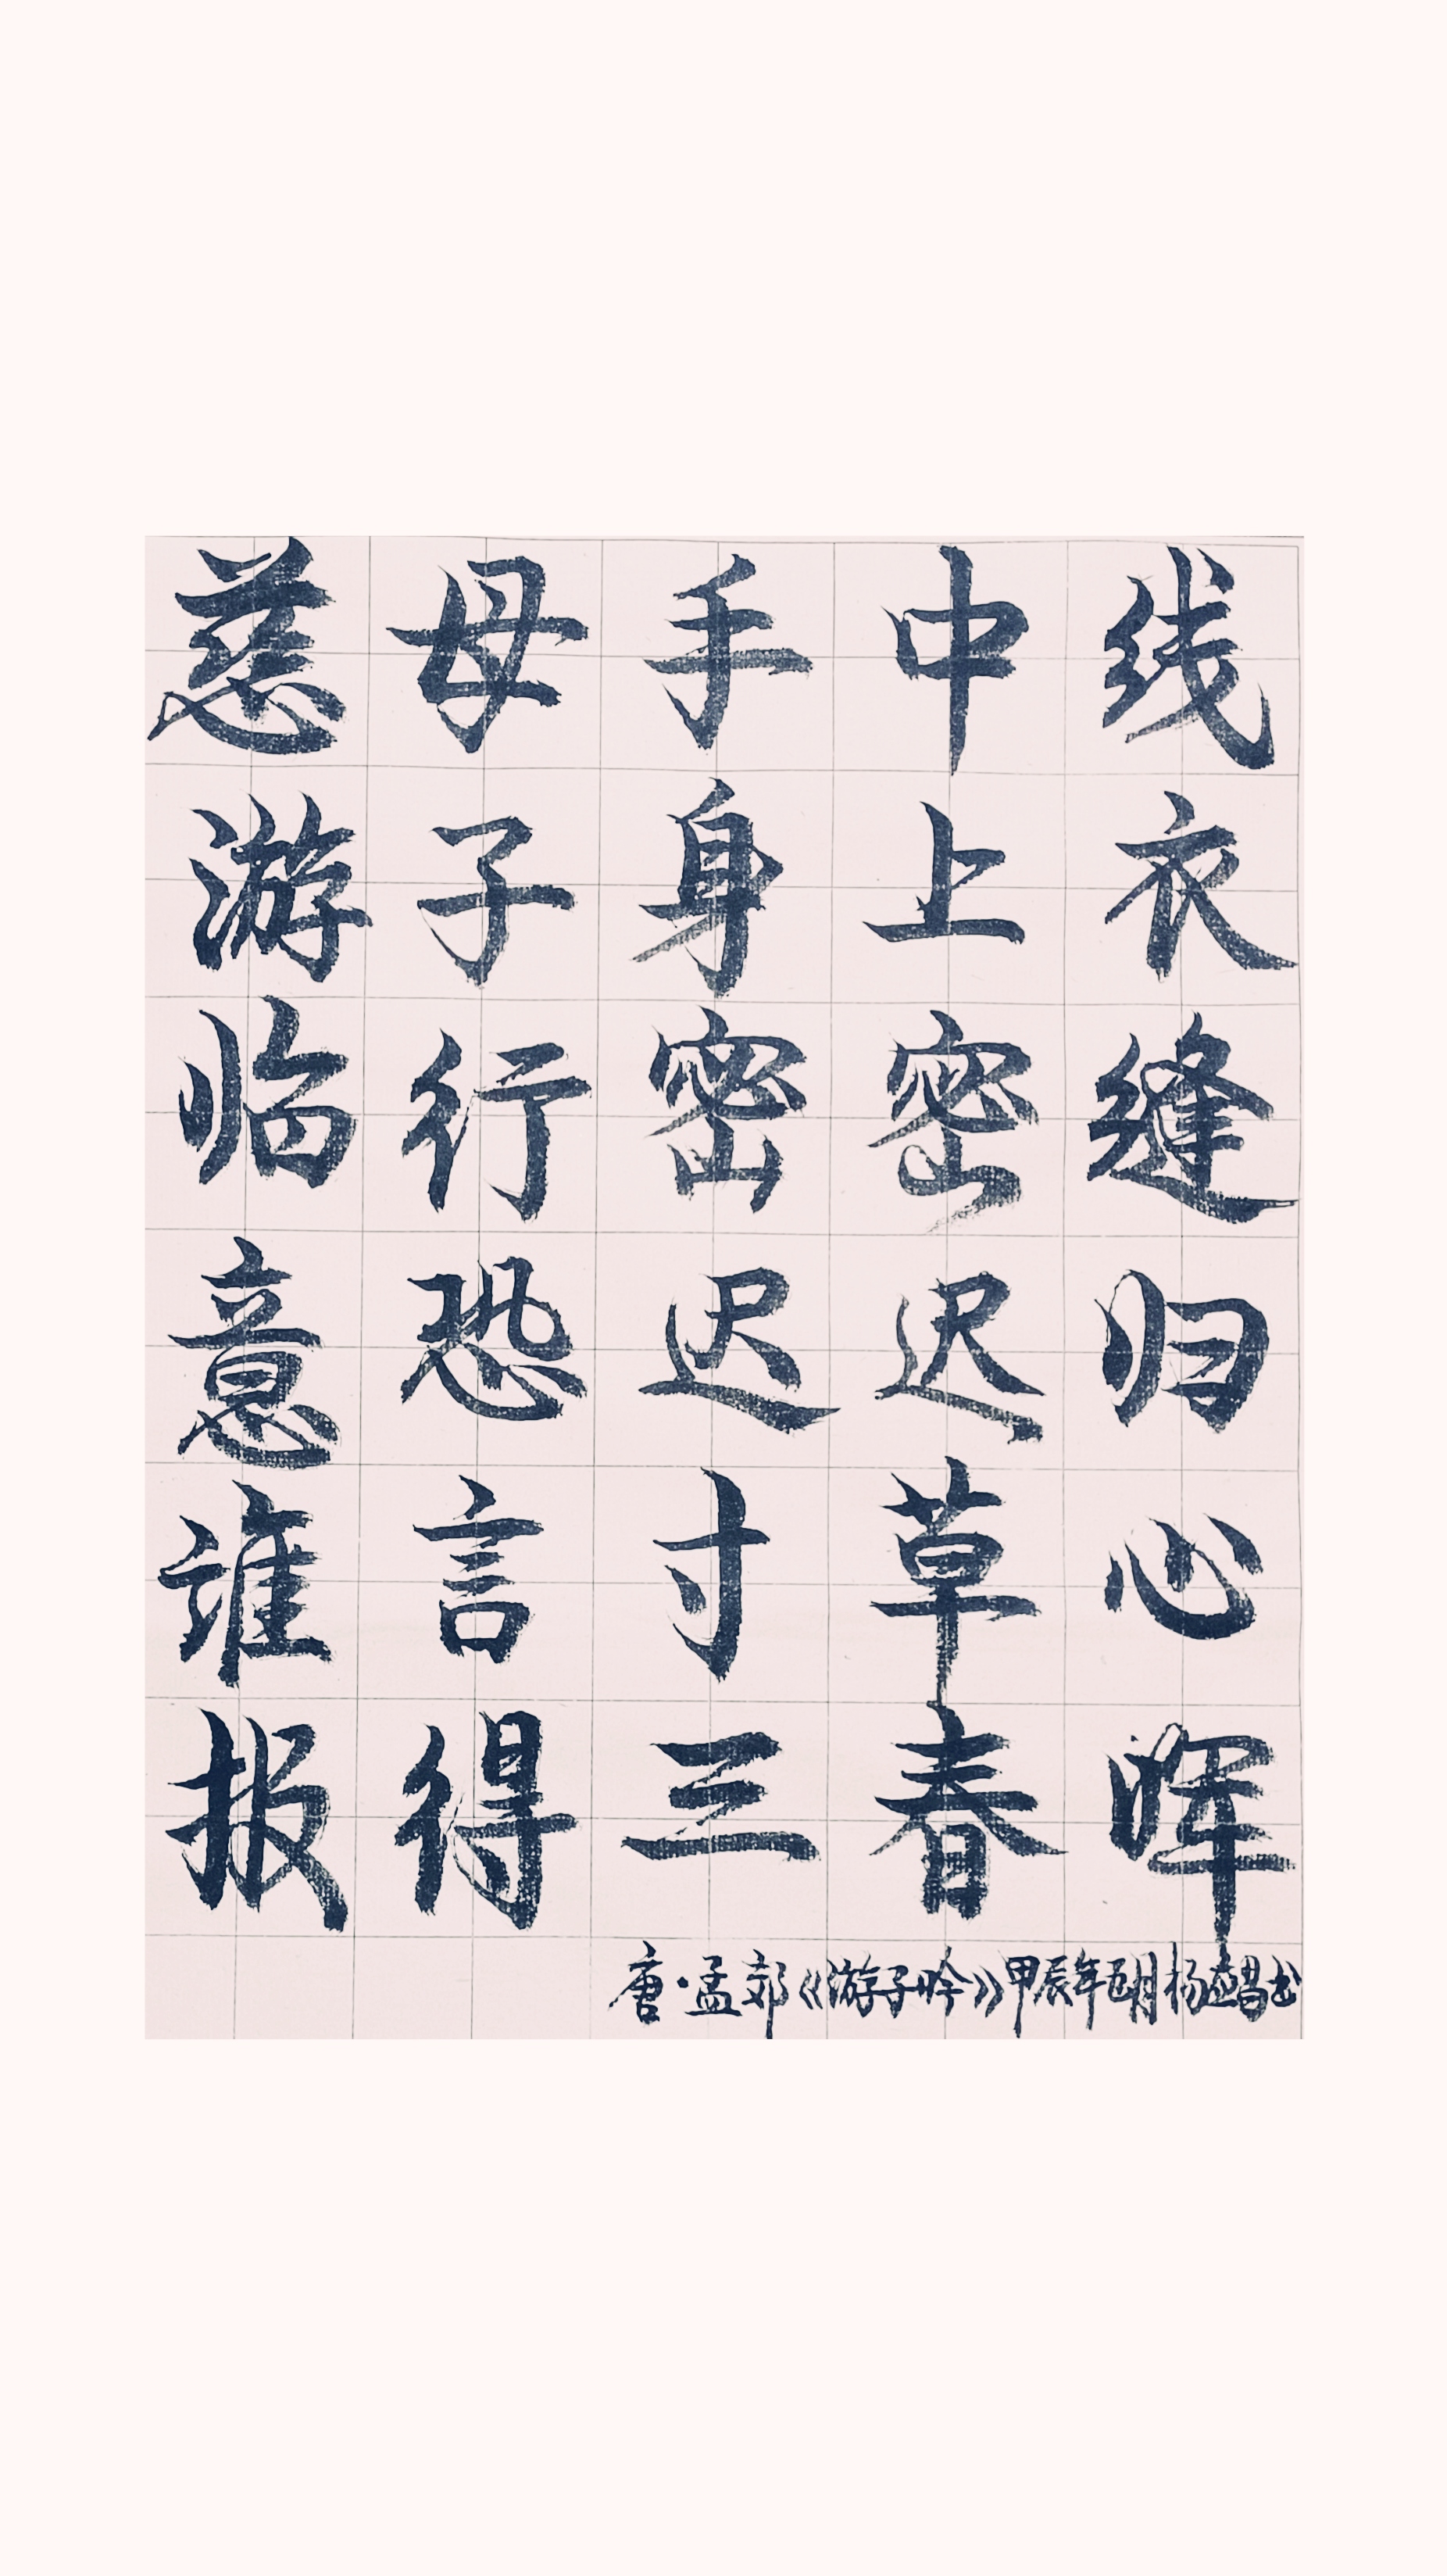 慈母手中线
游子身上衣
临行密密缝
意恐迟迟归
谁言寸草心
报得三春晖
唐·孟郊《游子吟》甲辰年 杨 昌书